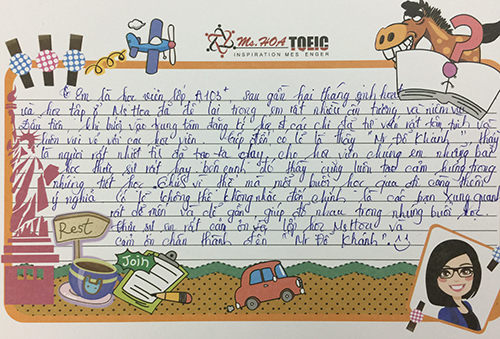 Ms. HOA TOEIC
INSPIRATION MESSENGER
Em là học viên lớp A103+, sau gần hai tháng sinh hoạt
và học tập ở Ms Hoa đã để lại trong em rất nhiều ấn tượng và niềm vui
Đầu tiên khi bước vào trung tâm đăng kí học các chị đã tư vấn rất tận tình và
luôn vui vẻ với các học viên. Tiếp đến có lẽ là thầy "Mr Đỗ Khánh", thầy
là người rất nhiệt tình đã tạo ra cho học viên chúng em những bài
học thực sự rất hay bên cạnh đó thầy cũng luôn tạo cảm hứng trong
những tiết học. Chính vì thế mà mỗi buổi học qua đi càng thêm
ý nghĩa. Có lẽ không thể không nhắc đến chính là các bạn xung quanh
rất dễ mến và dễ gần, giúp đỡ nhau trong những buổi học.
Thực sự em rất cảm ơn lớp học Ms Hoa và
cảm ơn chân thành đến "Mr Đỗ Khánh"
Rest
Join